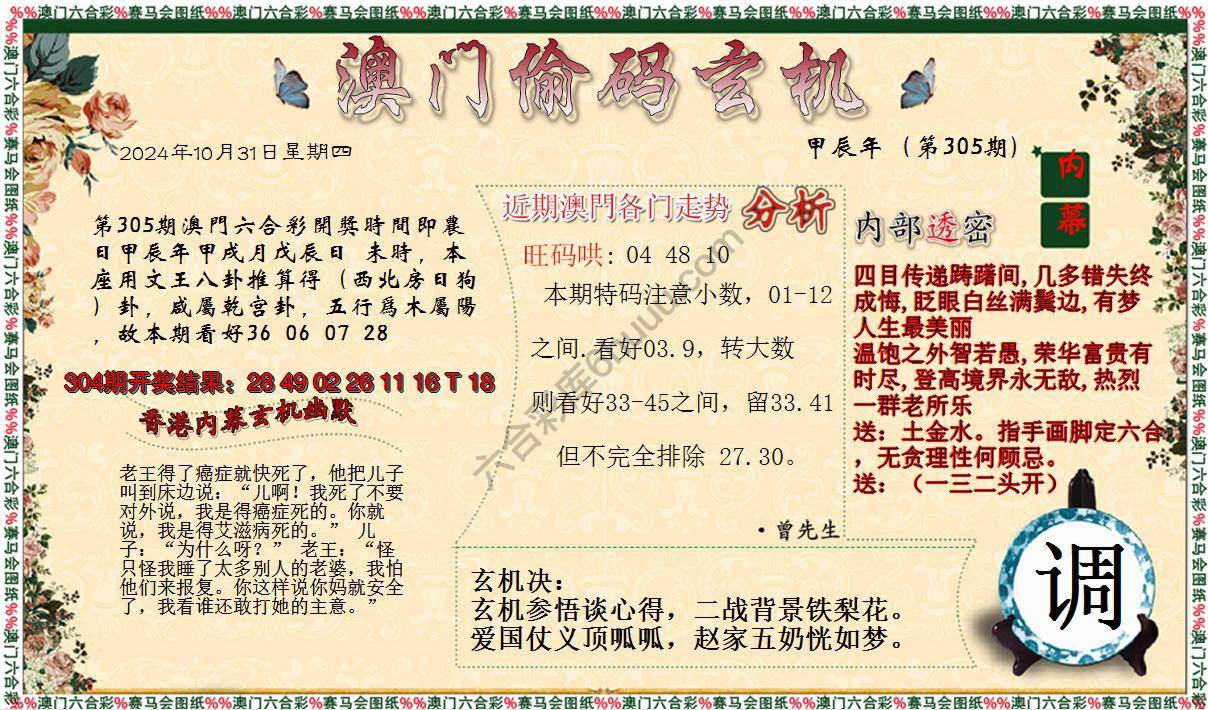 %%澳门六合彩%赛马会图纸%%澳门六合彩%赛马会图纸%%澳门六合彩%赛马会图纸%%澳门六合彩%赛马会图纸%%澳门六合彩%赛马会图纸%%澳门六合彩%赛马会图纸%%
澳门偷码玄机
2024年10月31日星期四
甲辰年（第305期）
内幕
第305期澳門六合彩開獎時間即農
日甲辰年甲戌月戊辰日 未時，本
座用文王八卦推算得（西北房日狗
）卦，咸屬乾宫卦，五行爲木屬陽
，故本期看好36 06 07 28
304期开奖结果：28 49 02 26 11 16 T 18
香港内幕玄机幽默
老王得了癌症就快死了，他把儿子
叫到床边说：“儿啊！我死了不要
对外说，我是得癌症死的。你就
说，我是得艾滋病死的。” 儿
子：“为什么呀？” 老王：“怪
只怪我睡了太多别人的老婆，我怕
他们来报复。你这样说你妈就安全
了，我看谁还敢打她的主意。”
近期澳門各门走势 分析
旺码哄: 04 48 10
本期特码注意小数，01-12
之间.看好03.9，转大数
则看好33-45之间，留33.41
但不完全排除 27.30。
·曾先生
内部透密
四目传递踌躇间,几多错失终
成悔,眨眼白丝满鬓边,有梦
人生最美丽
温饱之外智若愚,荣华富贵有
时尽,登高境界永无敌,热烈
一群老所乐
送：土金水。指手画脚定六合
，无贪理性何顾忌。
送：（一三二头开）
玄机决：
玄机参悟谈心得，二战背景铁梨花。
爱国仗义顶呱呱，赵家五奶恍如梦。
调
%%澳门六合彩%赛马会图纸%%澳门六合彩%赛马会图纸%%澳门六合彩%赛马会图纸%%澳门六合彩%赛马会图纸%%澳门六合彩%赛马会图纸%%澳门六合彩%赛马会图纸%%